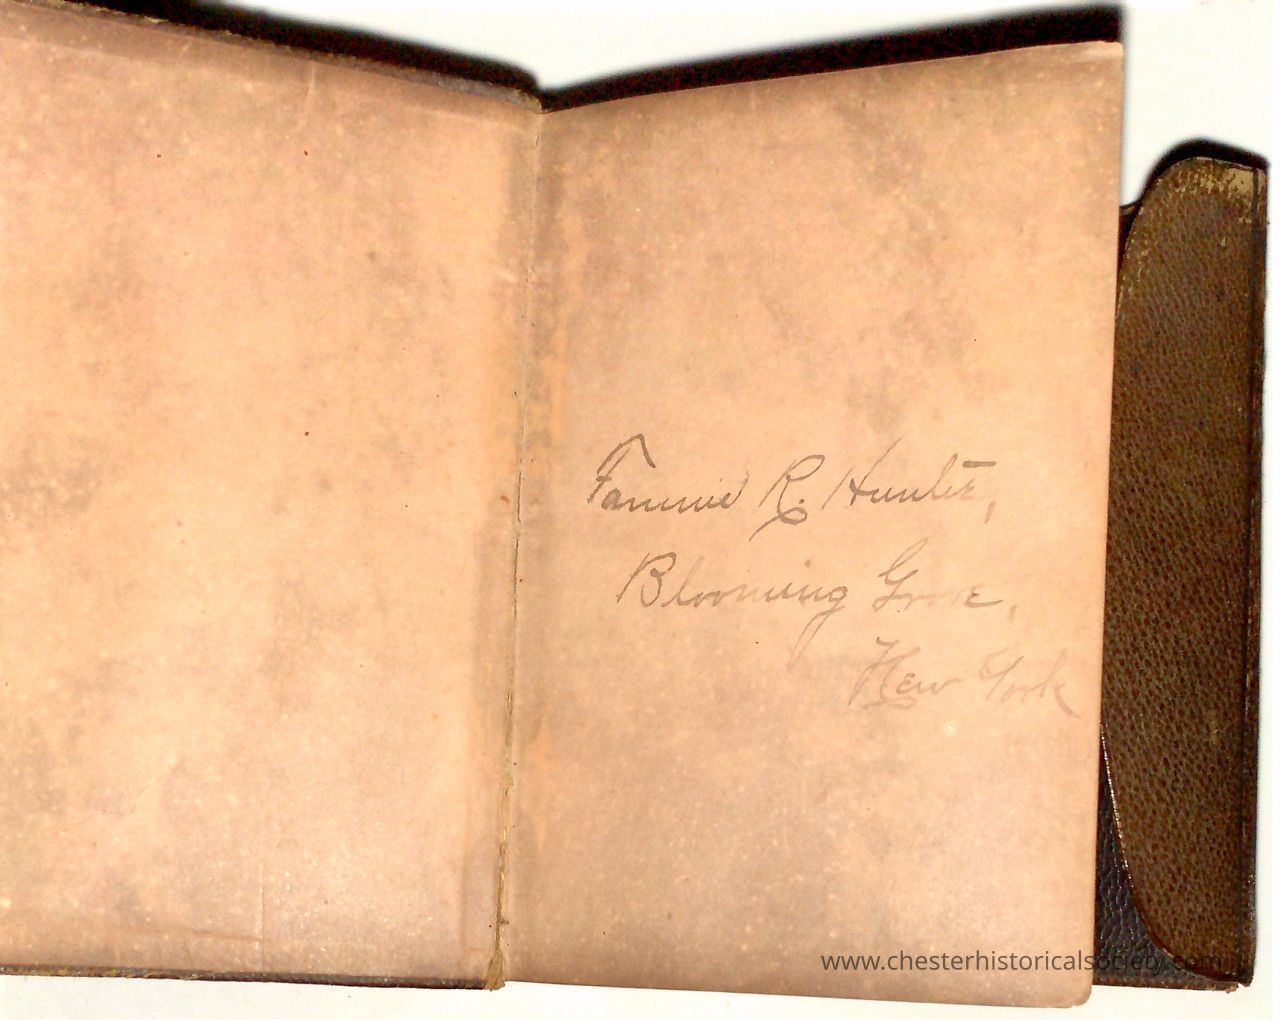 Fannie R. Hunter,
Blooming Grove,
New York
www.chesterhistoricalsociety.com